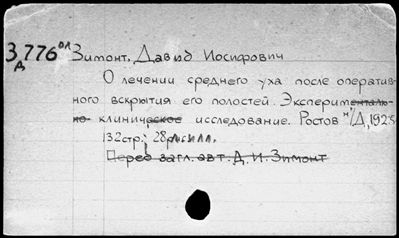 З 776 ол Зимонт, Давид Иосифович
Д
О лечении среднего уха после оператив-
ного вскрытия его полостей. Эксперименталь-
но-клиническое исследование. Ростов н/Д, 1925
132 стр; 28 рис. илл.
Перед загл. авт. Д. И. Зимонт